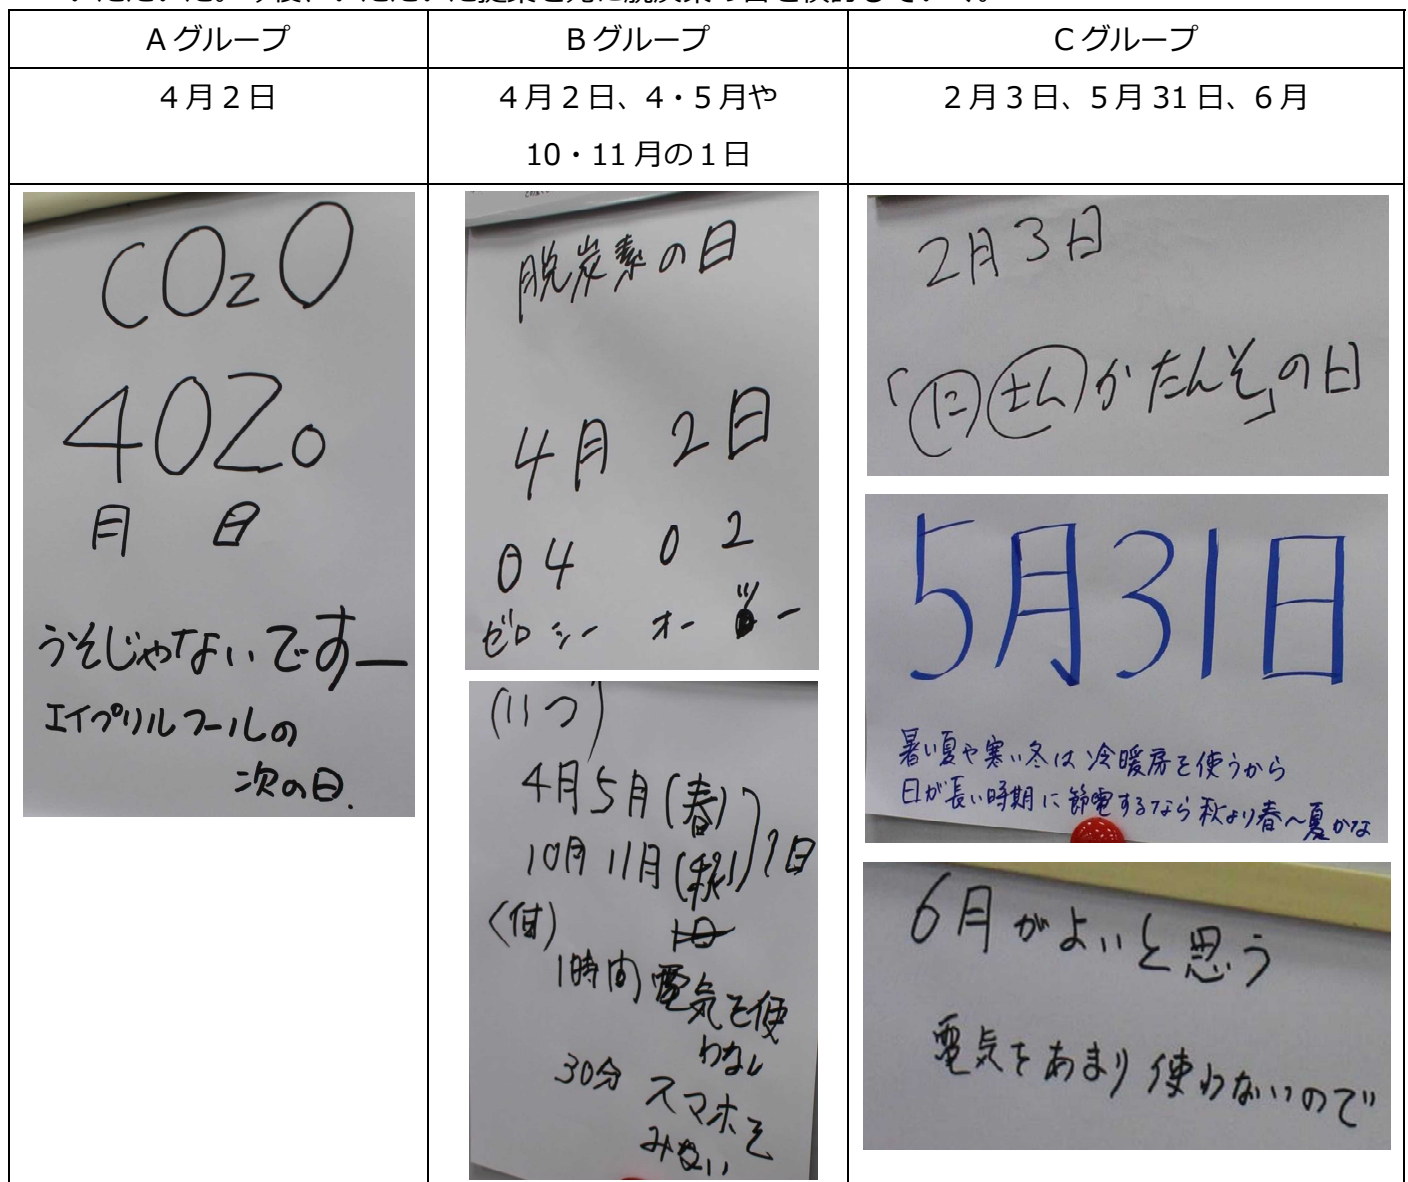 Aグループ
Bグループ
Cグループ
4月2日
4月2日、4・5月や
10・11月の1日
2月3日、5月31日、6月
CO₂0
402。
月 日
うそじゃないですー
エイプリルフールの
次の日.
脱炭素の日
4月 2日
04 02
ゼロシー オーツー
(いつ)
4月5月(春)
10月11月(秋) 1日
(何)
1時間 電気を使
わない
30分 スマホを
みない
2月3日
「にさんかたんそ」の日
5月31日
暑い夏や寒い冬は冷暖房を使うから
日が長い時期に節電するなら秋より春～夏かな
6月がよいと思う
電気をあまり使わないので